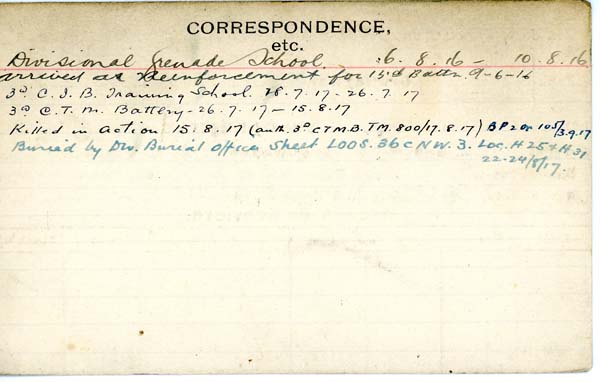 CORRESPONDENCE,
etc.
Divisional Grenade School. 6.8.16 - 10.8.16
arrived as Reinforcement for Battn 9-6-16
3rd C.I.B. Training School. .7.17 - 26.7.17
3rd C.T.M. Battery - 26.7.17 - 15.8.17
Killed in Action 15.8.17 (auth. 3rd CTMB.TM.800/17.8.17) BP2 105/3.9.17
Buried by Div. Burial Officer Sheet LOOS. 36c NW. 3. Loc. H25 & H31
22-24/8/17.